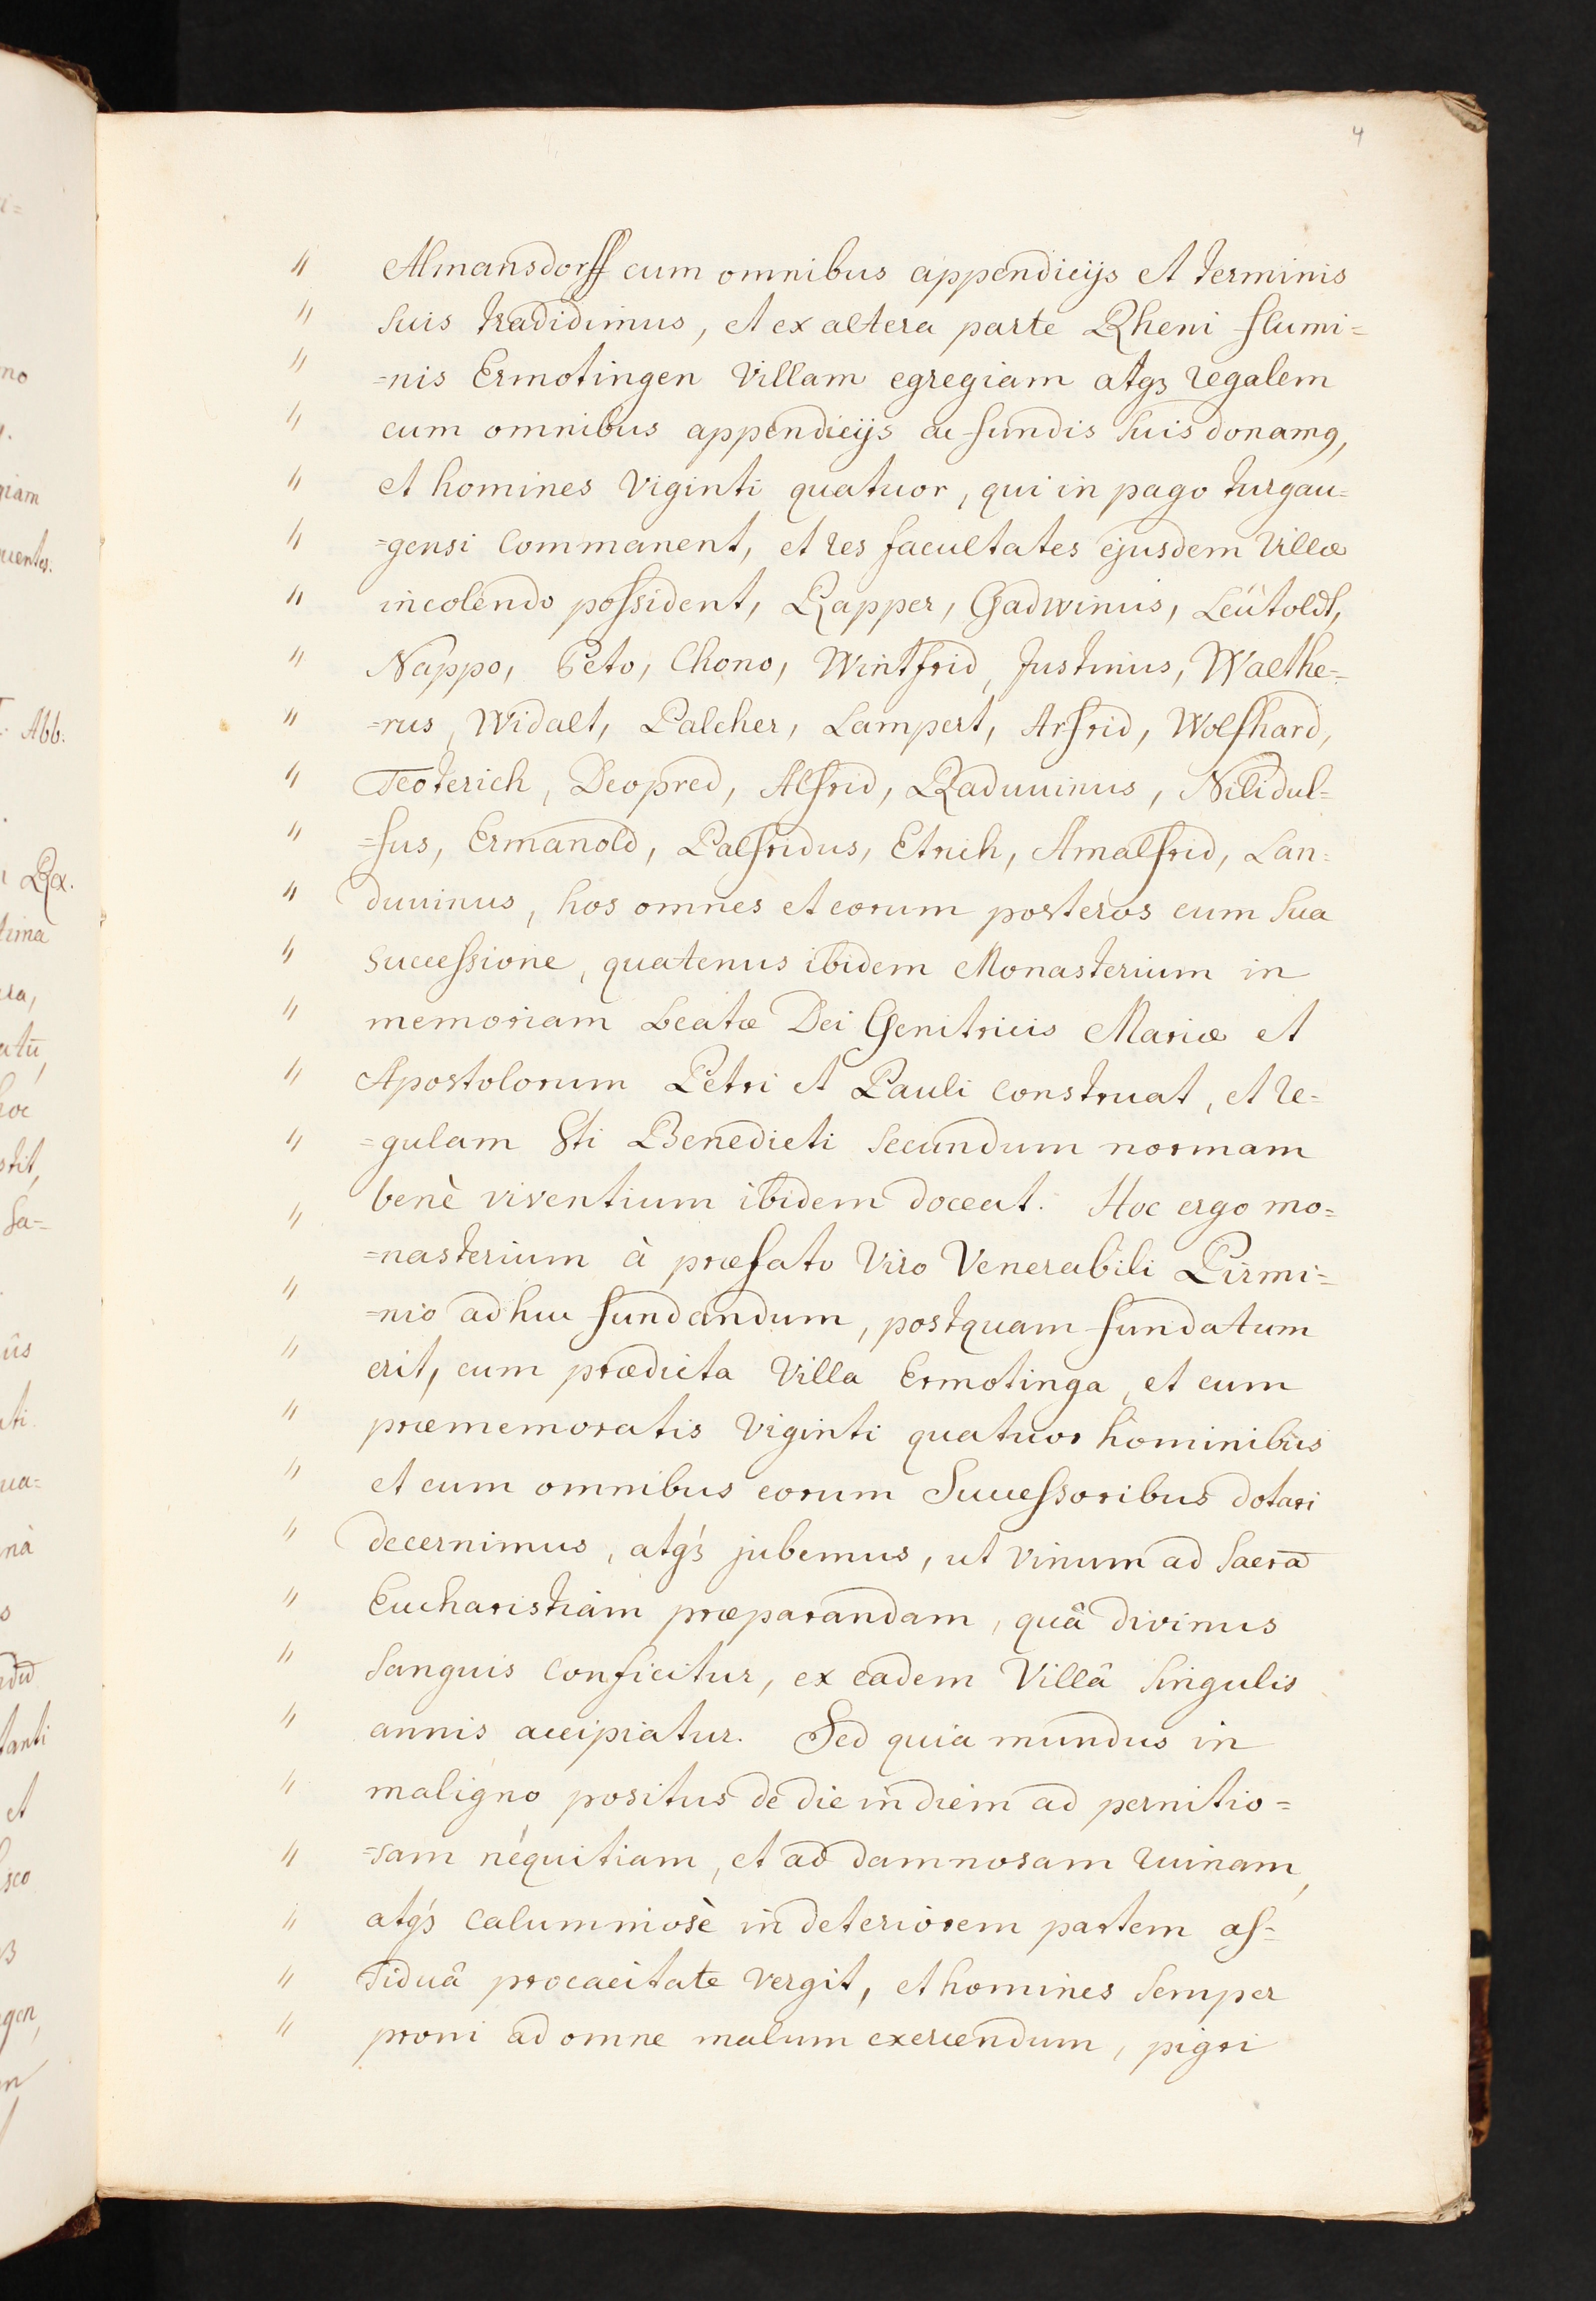 4
" Almansdorff cum omnibus appendicijs et terminis
" suis tradidimus, et ex altera parte Rheni flumi=
" =nis Ermotingen villam egregiam atq3 regalem
" cum omnibus appendicijs ac fundis suis donam9,
" et homines viginti quatuor, qui in pago turgau=
" =gensi commanent, et res facultates ejusdem villæ
" incolendo possident, Rapper, Gadwinus, Leütoldt,
" Nappo, Peto, Chono, Wintfrid, Justinus, Walthe=
" =rus, Widalt, Palcher, Lampert, Arfrid, Wolfhard,
" Teoterich, Deopred, Alfrid, Raduuinus, Nilidul=
" =fus, Ermanold, Palfridus, Etrich, Amalfrid, Lan=
" duuinus, hos omnes et eorum posteros cum sua
" successione, quatenus ibidem Monasterium in
" memoriam beatæ Dei Genitricis Mariæ et
" Apostolorum Petri et Pauli construat, et re=
" =gulam Sti Benedicti secundum normam
" benè viventium ibidem doceat. Hoc ergo mo=
=nasterium à præfato viro Venerabili Pirmi=
" =nio adhuc fundandum, postquam fundatum
" erit, cum prædicta villa Ermotinga, et cum
" præmemoratis viginti quatuor hominibus
" et cum omnibus eorum Successoribus dotari
" decernimus, atq3 jubemus, ut vinum ad sacrā
" Eucharistiam præparandam, quâ divinus
" sanguis conficitur, ex eadem Villâ singulis
" annis accipiatur. Sed quia mundus in
" maligno positus de die in diem ad pernitio=
" =sam néquitiam, et ad damnosam ruinam,
" atq3 calumniosè in deteriorem partem as=
" siduâ procacitate vergit, et homines semper
" proni ad omne malum exercendum, pigri